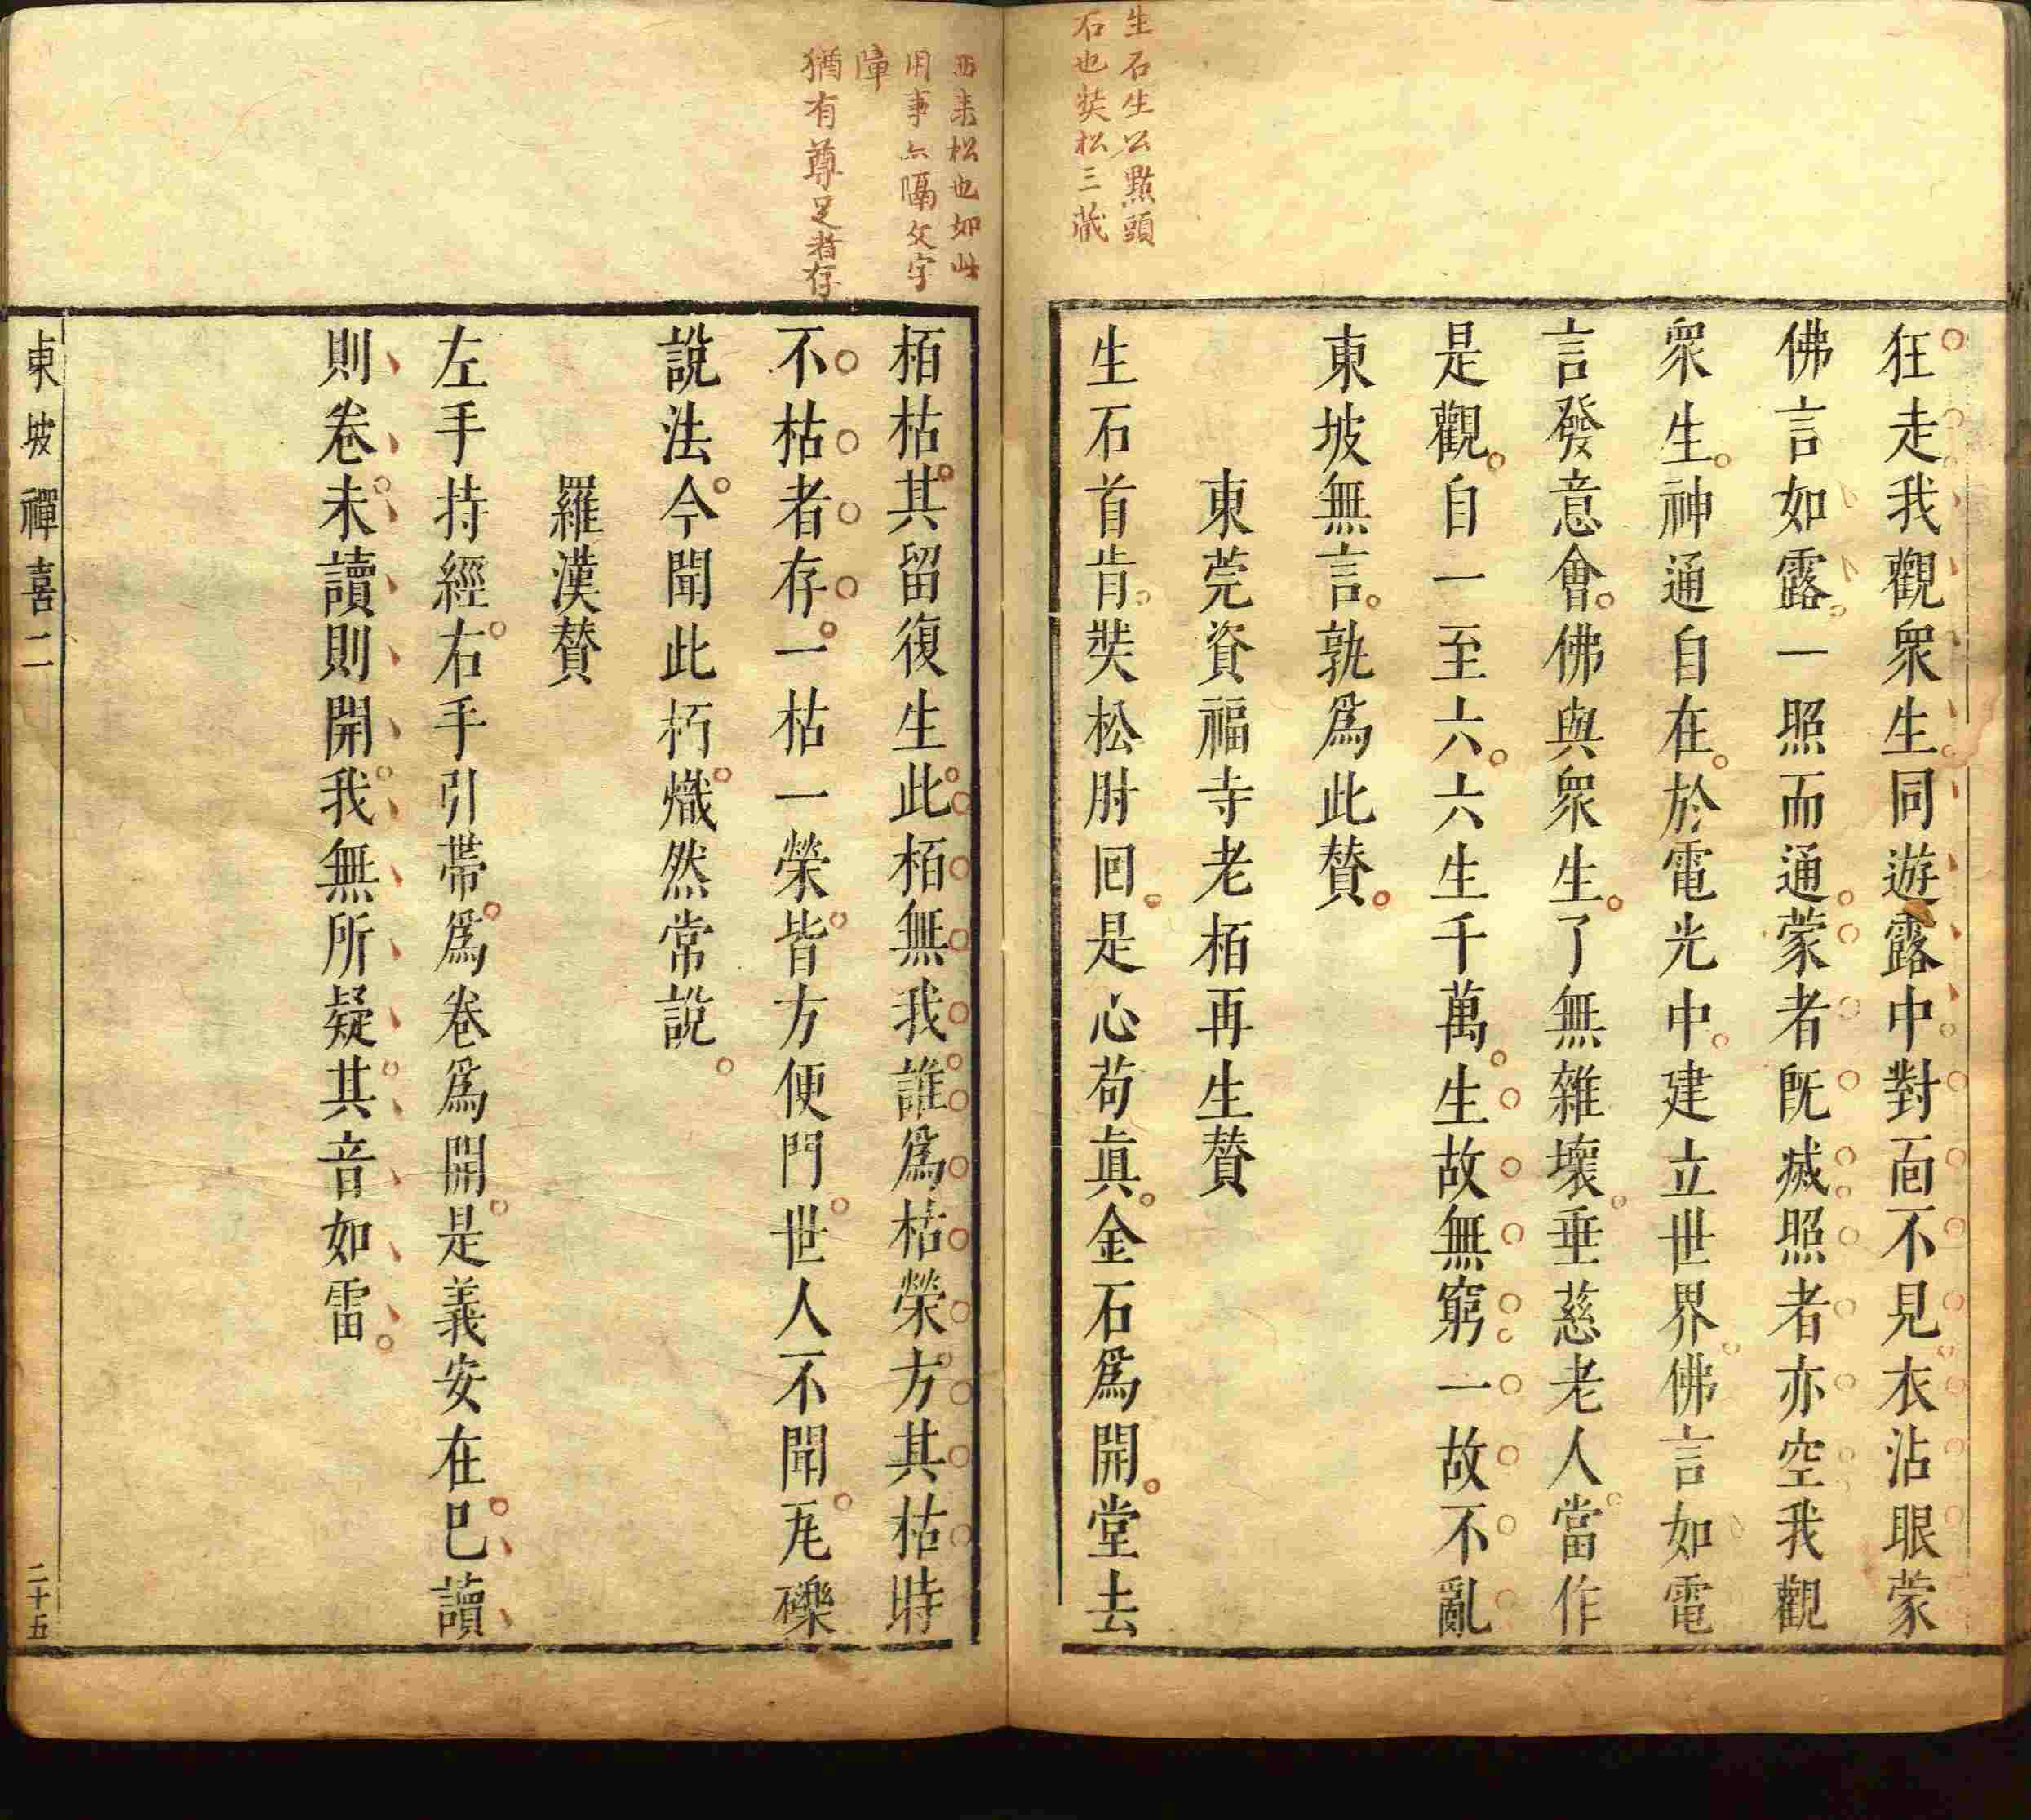 生石生公點頭
石也奘松三藏
狂走我觀衆生同遊露中對面不見衣沾眼蒙
佛言如露一照而通蒙者旣滅照者亦空我觀
衆生神通自在於電光中建立世界佛言如電
言發意會佛與衆生了無雜壞垂慈老人當作
是觀自一至六六生千萬生故無窮一故不亂
東坡無言孰爲此贊
東莞資福寺老栢再生贊
生石首肯奘松肘回是心苟眞金石爲開堂去
西來松也如此
用事亦隔文字
障
猶有尊足者存
栢枯其留復生此栢無我誰爲枯榮方其枯時
不枯者存一枯一榮皆方便門世人不聞瓦礫
說法今聞此朽熾然常說
羅漢贊
左手持經右手引帶爲卷爲開是義安在巳讀
則卷未讀則開我無所疑其音如雷
東坡禪喜二
二十五